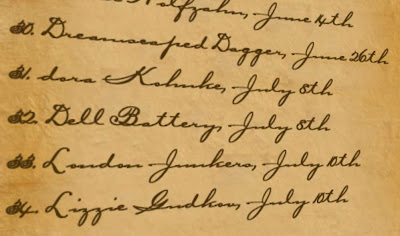 Wolfzahn, June 14th
30. Dreamscaped Dagger, June 26th
31. dora Kohnke, July 8th
32. Dell Battery, July 8th
33. London Junkers, July 10th
34. Lizzie Gudkov, July 10th